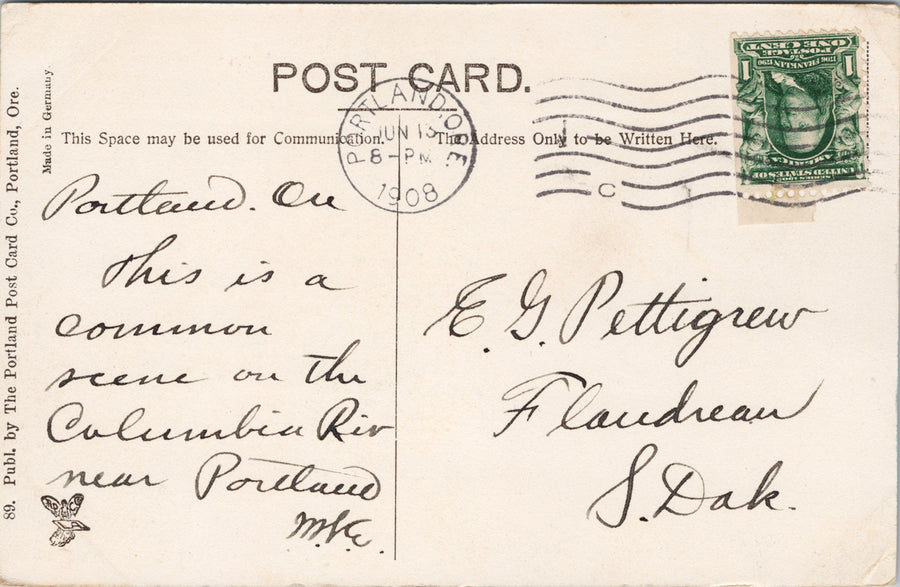 POST CARD.
This Space may be used for Communication.
The Address Only to be Written Here.
PORTLAND, ORE
JUN 13
8-PM
1908
C
ONE CENT
POSTAGE
1706 FRANKLIN 1790
1 1
UNITED STATES OF AMERICA
SERIES 1902
Portland. Ore
This is a
common
scene on the
Columbia Riv
near Portland
E. G. Pettigrew
Flandreau
S. Dak.
89. Publ. by The Portland Post Card Co., Portland, Ore.
Made in Germany.